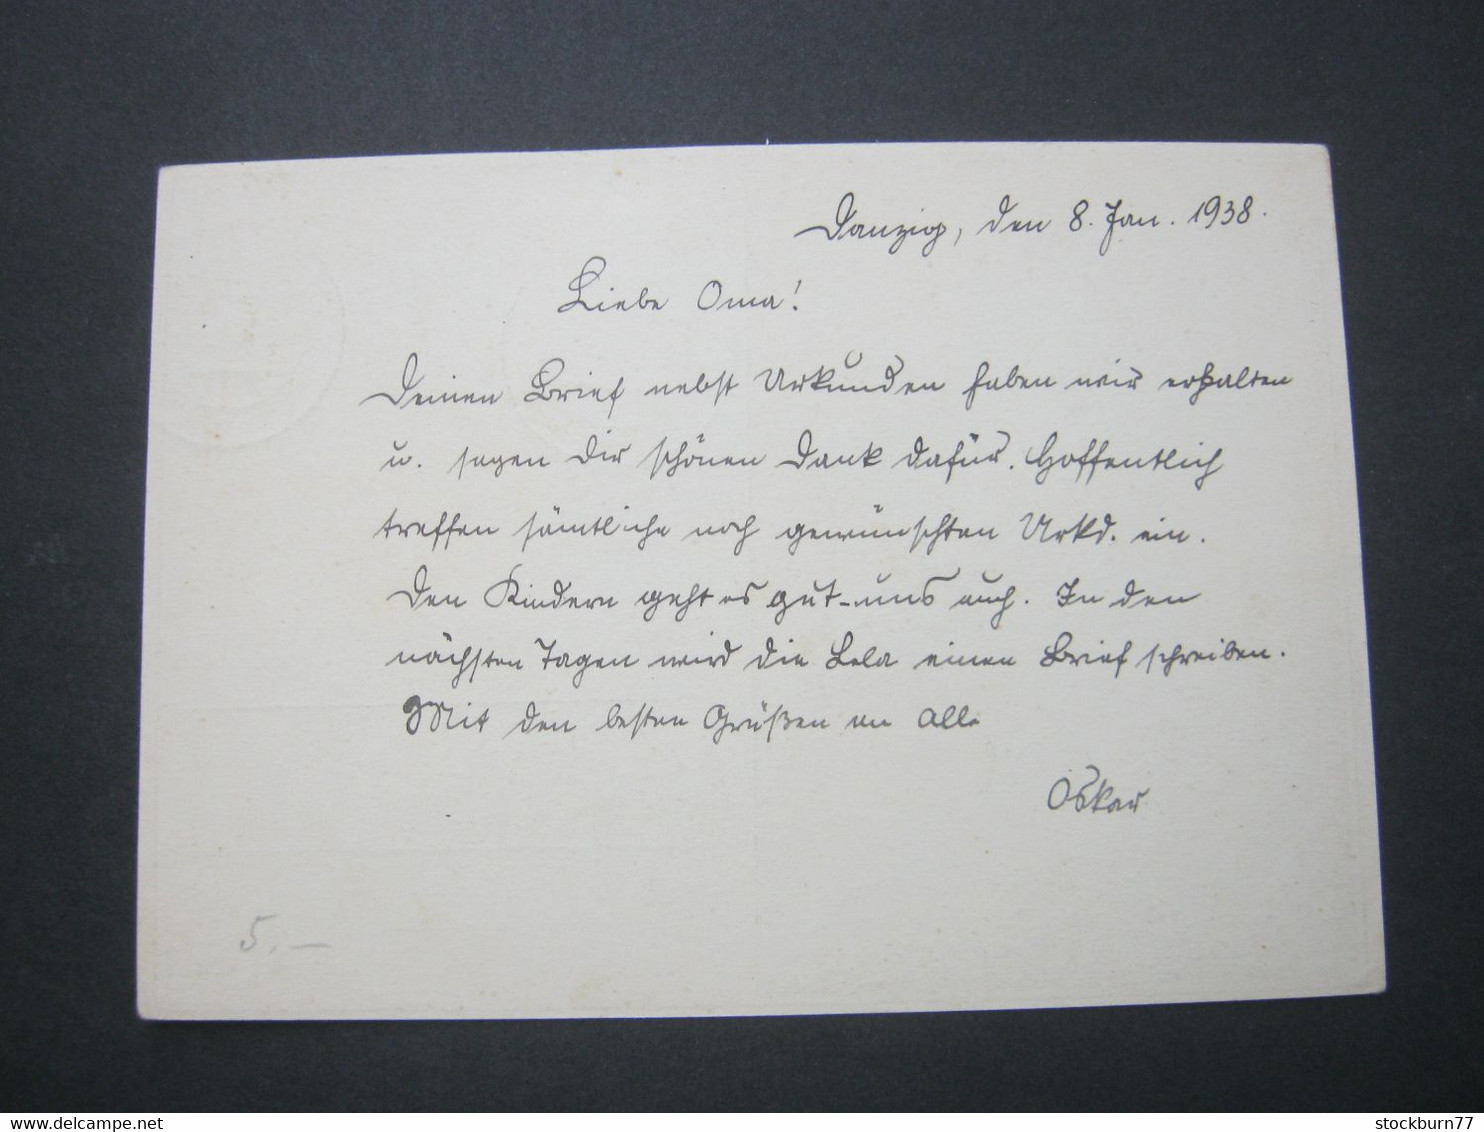 Danzig, den 8. Jan. 1938.
Liebe Oma!
Deinen Brief nebst Urkunden haben wir erhalten
u. sagen Dir schönen Dank dafür. Hoffentlich
treffen sämtliche noch gewünschten Urkd. ein.
Den Kindern geht es gut - uns auch. In den
nächsten Tagen wird die Lela einen Brief schreiben.
Mit den besten Grüßen an alle
Oskar
5.–
delcampe.net
stockburn77